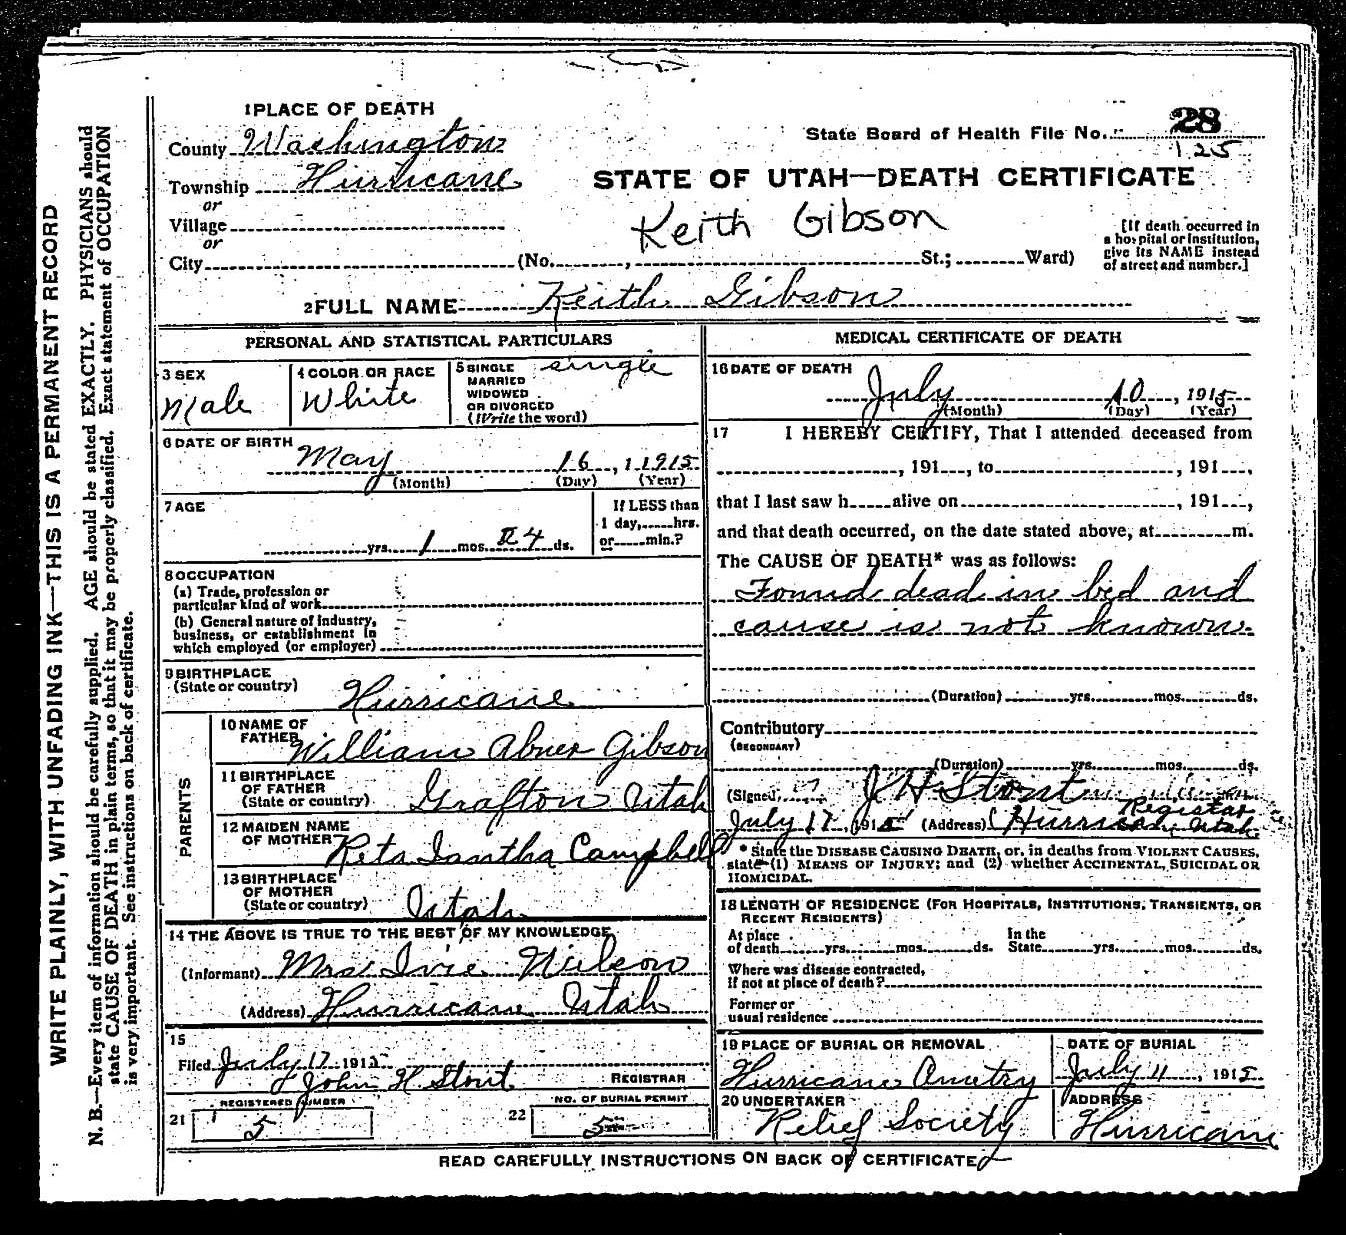 1 PLACE OF DEATH
County Washington
Township Hurricane
or
Village
or
City (No. , St.; Ward)
State Board of Health File No. 28
125
STATE OF UTAH—DEATH CERTIFICATE
Keith Gibson
[If death occurred in
a hospital or institution,
give its NAME instead
of street and number.]
2 FULL NAME Keith Gibson
PERSONAL AND STATISTICAL PARTICULARS
3 SEX
Male
4 COLOR OR RACE
White
5 SINGLE
MARRIED
WIDOWED
OR DIVORCED
(Write the word)
single
6 DATE OF BIRTH
May 16, 1 1915
(Month) (Day) (Year)
7 AGE
yrs. 1 mos. 24 ds.
If LESS than
1 day, hrs.
or min.?
8 OCCUPATION
(a) Trade, profession or
particular kind of work
(b) General nature of industry,
business, or establishment in
which employed (or employer)
9 BIRTHPLACE
(State or country)
Hurricane
PARENTS
10 NAME OF
FATHER
William Abner Gibson
11 BIRTHPLACE
OF FATHER
(State or country)
Grafton Utah
12 MAIDEN NAME
OF MOTHER
Reta Iantha Campbell
13 BIRTHPLACE
OF MOTHER
(State or country)
Utah
14 THE ABOVE IS TRUE TO THE BEST OF MY KNOWLEDGE
(Informant) Mrs Ivie Nielson
(Address) Hurricane Utah
15
Filed July 17 1915
John H Stout
REGISTRAR
REGISTERED NUMBER
21 5
NO. OF BURIAL PERMIT
22 5
MEDICAL CERTIFICATE OF DEATH
16 DATE OF DEATH
July 10, 1915
(Month) (Day) (Year)
17 I HEREBY CERTIFY, That I attended deceased from
, 191 , to , 191 ,
that I last saw h alive on , 191 ,
and that death occurred, on the date stated above, at m.
The CAUSE OF DEATH* was as follows:
Found dead in bed and
cause is not known
(Duration) yrs. mos. ds.
Contributory
(SECONDARY)
(Duration) yrs. mos. ds.
(Signed) J H Stout
Registar
July 17 1915 (Address) Hurricane, Utah
* State the DISEASE CAUSING DEATH, or, in deaths from VIOLENT CAUSES,
state (1) MEANS OF INJURY; and (2) whether ACCIDENTAL, SUICIDAL OR
HOMICIDAL.
18 LENGTH OF RESIDENCE (FOR HOSPITALS, INSTITUTIONS, TRANSIENTS, OR
RECENT RESIDENTS)
At place
of death yrs. mos. ds.
In the
State yrs. mos. ds.
Where was disease contracted,
if not at place of death?
Former or
usual residence
19 PLACE OF BURIAL OR REMOVAL
Hurricane Cmetry
DATE OF BURIAL
July 11, 1915
20 UNDERTAKER
Relief Society
ADDRESS
Hurricane
READ CAREFULLY INSTRUCTIONS ON BACK OF CERTIFICATE
WRITE PLAINLY, WITH UNFADING INK—THIS IS A PERMANENT RECORD
N. B.—Every item of information should be carefully supplied. AGE should be stated EXACTLY. PHYSICIANS should
state CAUSE OF DEATH in plain terms, so that it may be properly classified. Exact statement of OCCUPATION
is very important. See instructions on back of certificate.